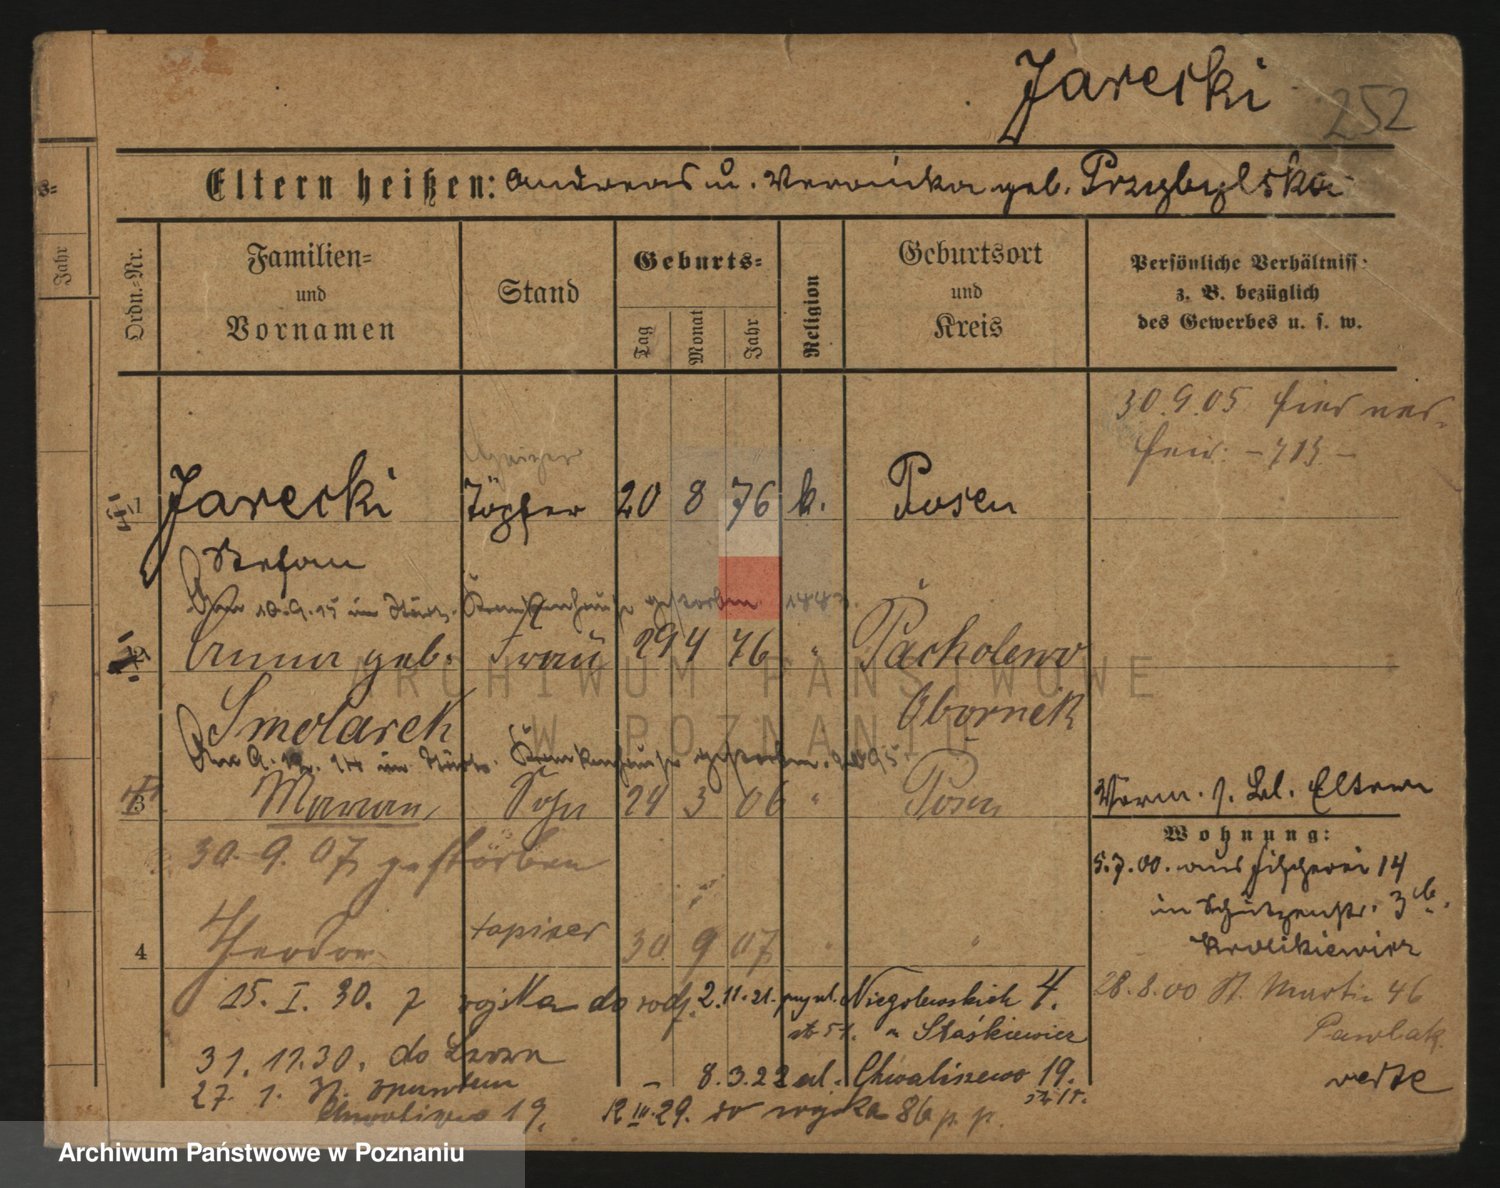 Jarecki
252
Eltern heißen: Andreas u. Veronika geb. Przybylska
s=
Jahr
Ordn.-Nr.
Familien=
und
Vornamen
Stand
Geburts=
Tag
Monat
Jahr
Religion
Geburtsort
und
Kreis
Persönliche Verhältniss:
z. B. bezüglich
des Gewerbes u. s. w.
30.9.05 hier
- 713 -
1 Jarecki Töpfer 20 8 76 k. Posen
Stefan
Am 10.9.15 im Städt. Krankenhause gestorben
2 Anna geb. Frau 29 4 76 " Pacholewo
Smolarek Obornik
im Städt. Krankenhause gestorben
3 Marian, Sohn 24 3 06 " Posen
30.9.07 gestorben
4 Theodor tapicer 30 9 07 " "
15. I. 30. z wojska do rodz. 2.11.21. Niegolewskich 4.
Staśkiewicz
31.12.30. do
27. 1.
8.3.22 ul. Chwaliszewo 19.
19. 12 III. 29. do wojska 86 p. p.
Verm. s. Bl. Eltern
Wohnung:
5.7.00. aus Fischerei 14
in Schützenstr. 3 b.
Krolikiewicz
28.8.00 St. Martin 46
Pawlak
verte
ARCHIWUM PAŃSTWOWE
W POZNANIU
Archiwum Państwowe w Poznaniu